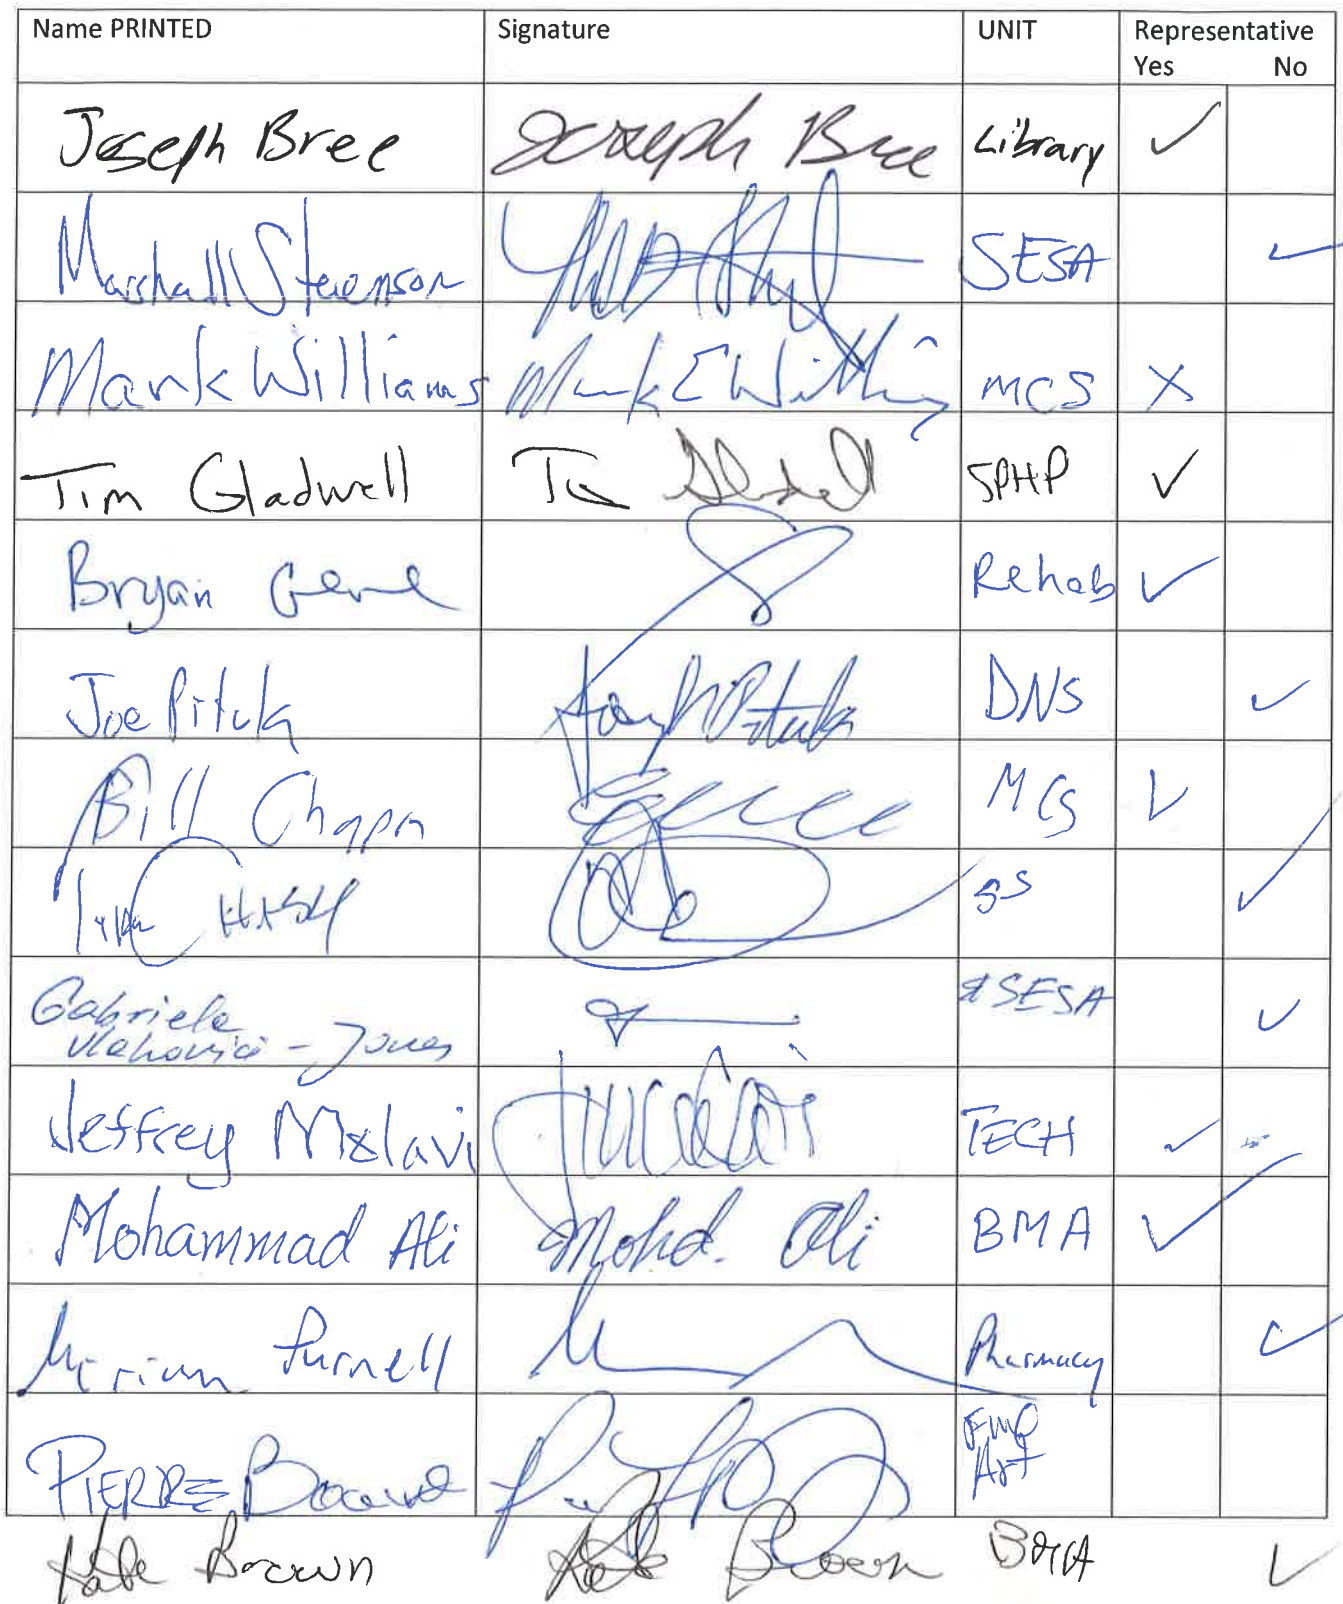 Name PRINTED Signature UNIT Representative
Yes No
Joseph Bree Joseph Bree Library ✓
Marshall Stevenson SESA ✓
Mark Williams Mark E Williams MCS X
Tim Gladwell Tim Gladwell SPHP ✓
Bryan Rehab ✓
Joe Pituk Joseph Pituk DNS ✓
Bill Chapn MCS ✓
SS ✓
Gabriele SESA ✓
Vlahovici - Jones
Jeffrey Molavi TECH ✓
Mohammad Ali Mohd. Ali BMA ✓
Miriam Purnell Pharmacy ✓
PIERRE Art
Kate Brown Kate Brown ✓